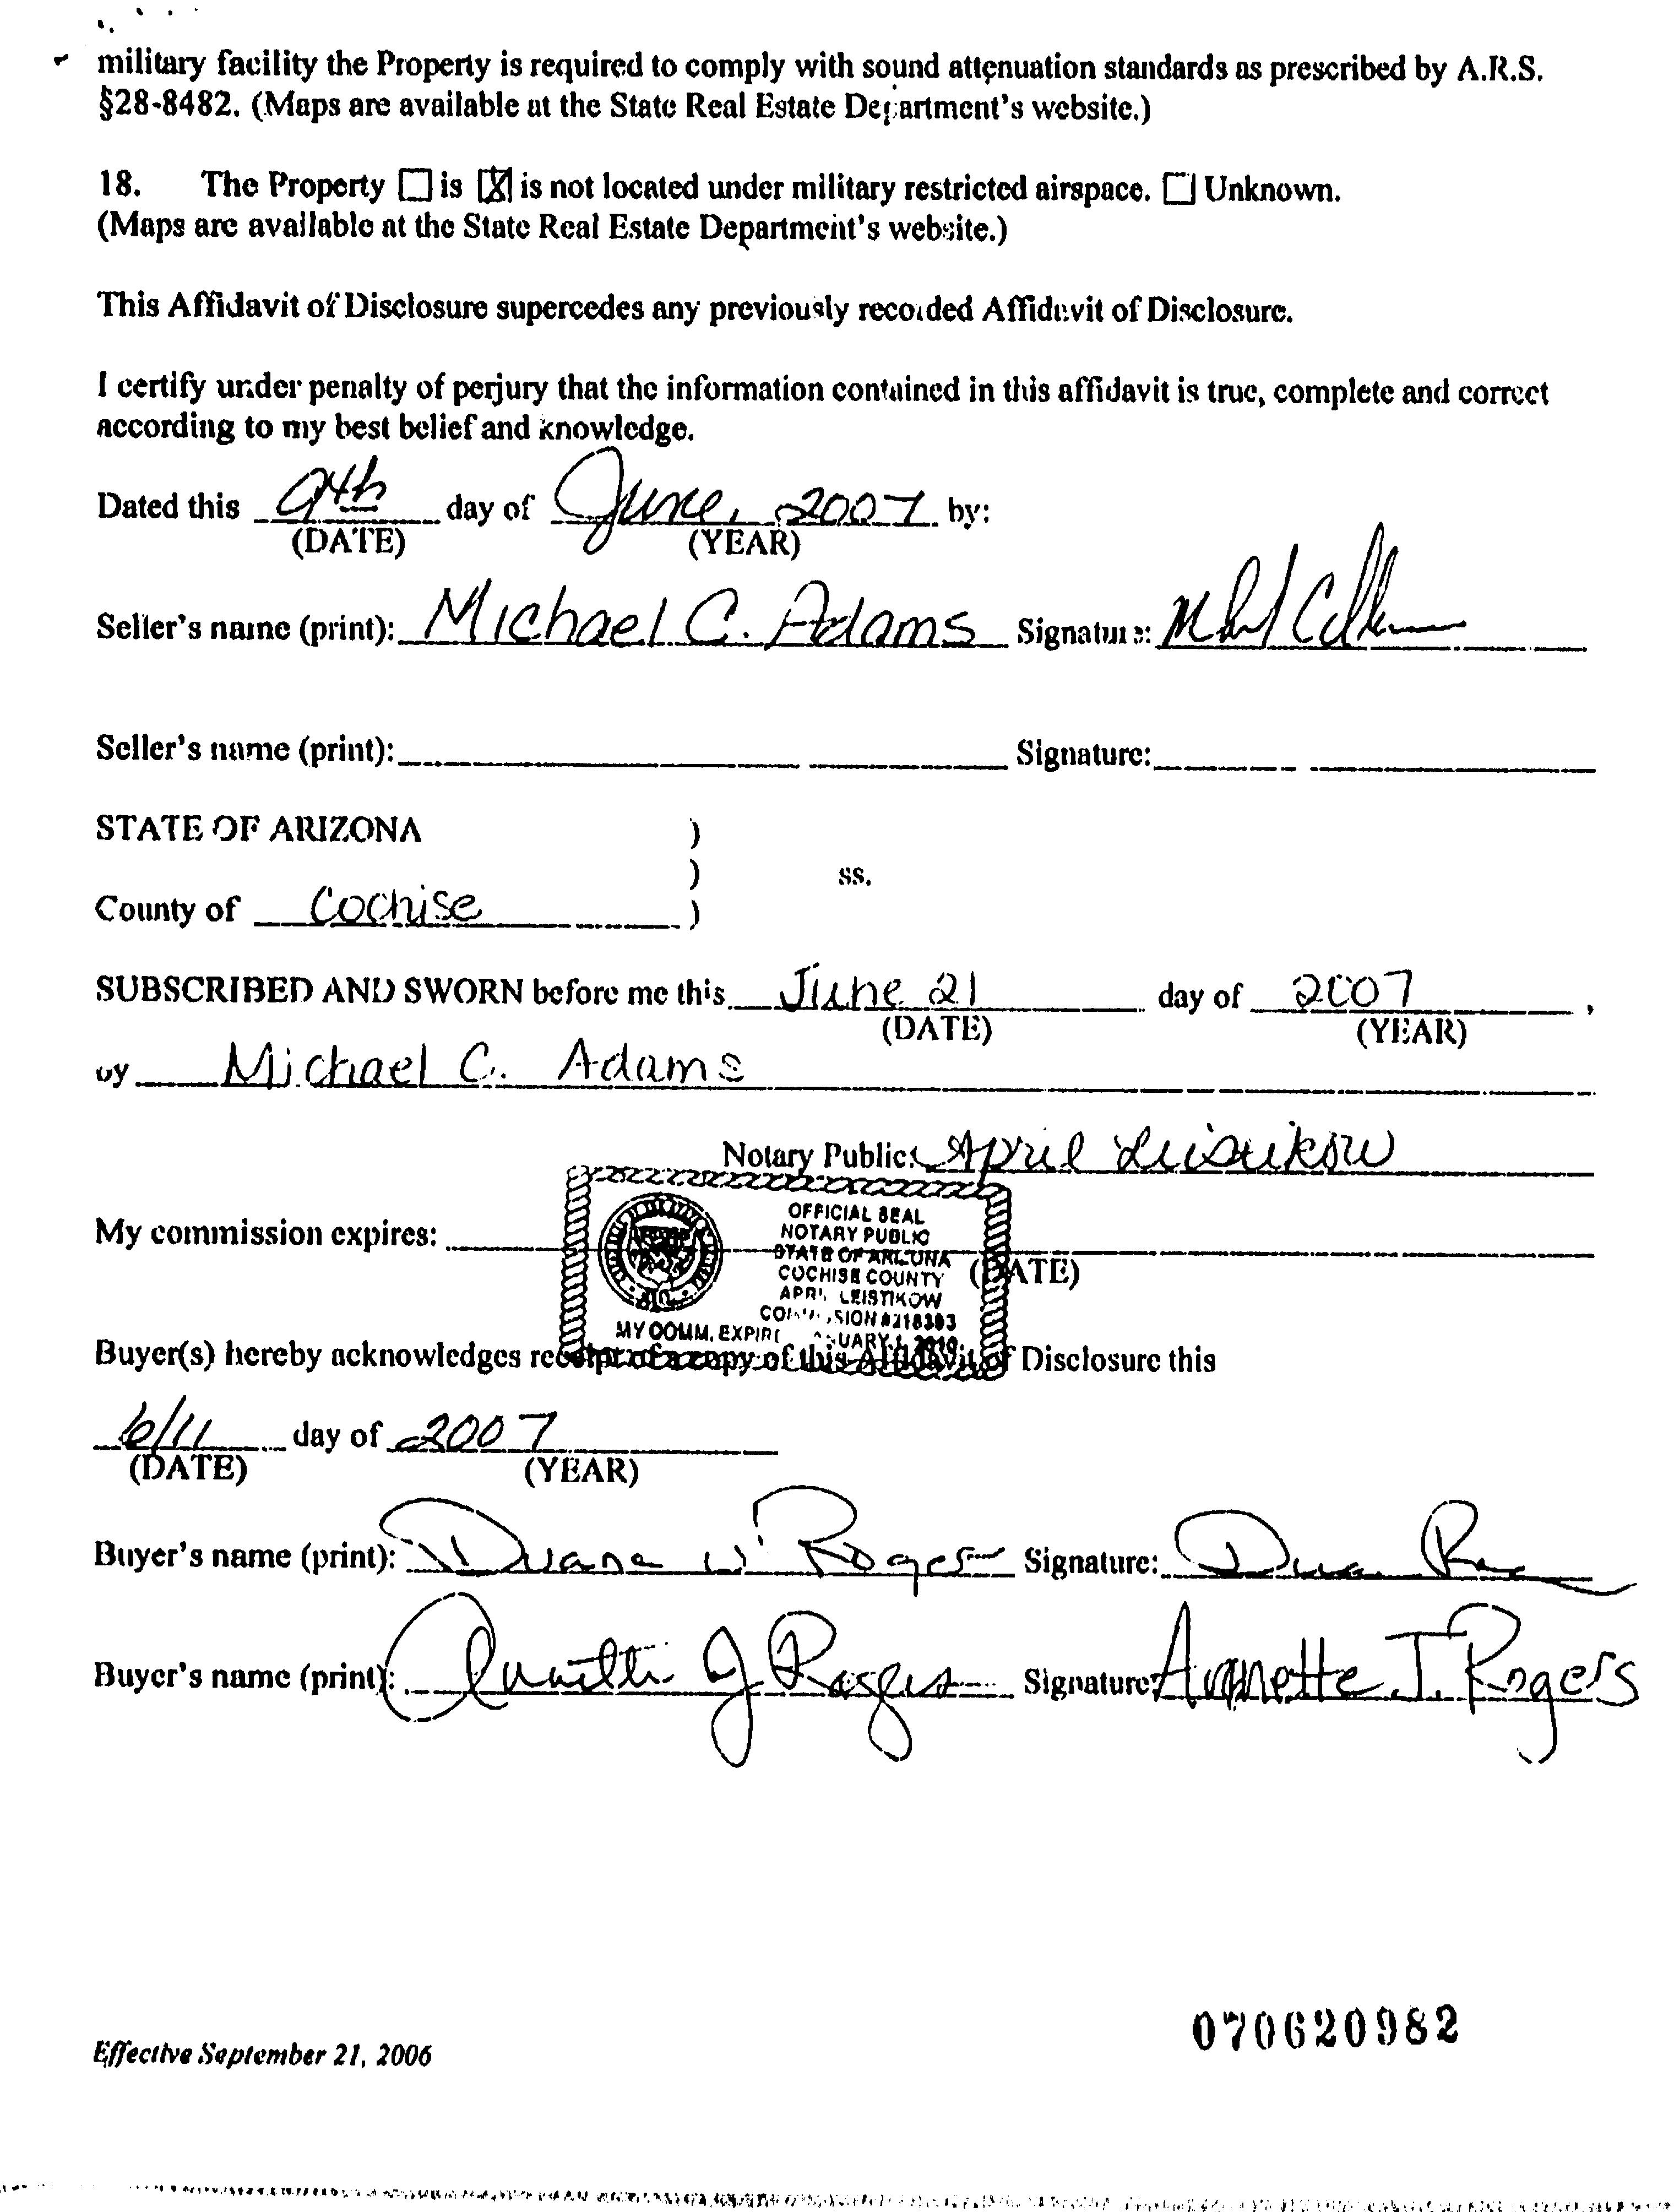 military facility the Property is required to comply with sound attenuation standards as prescribed by A.R.S.
§28-8482. (Maps are available at the State Real Estate Department's website.)
18. The Property ☐ is ☒ is not located under military restricted airspace. ☐ Unknown.
(Maps are available at the State Real Estate Department's website.)
This Affidavit of Disclosure supercedes any previously recorded Affidavit of Disclosure.
I certify under penalty of perjury that the information contained in this affidavit is true, complete and correct
according to my best belief and knowledge.
Dated this 9th day of June, 2007 by:
(DATE) (YEAR)
Seller's name (print): Michael C. Adams Signature:
Seller's name (print): Signature:
STATE OF ARIZONA )
) ss.
County of Cochise )
SUBSCRIBED AND SWORN before me this June 21 day of 2007,
(DATE) (YEAR)
by Michael C. Adams
Notary Public: April Leistikow
OFFICIAL SEAL
NOTARY PUBLIC
My commission expires: STATE OF ARIZONA
COCHISE COUNTY (DATE)
APRIL LEISTIKOW
COMMISSION #218383
MY COMM. EXPIRES JANUARY 1, 2010
Buyer(s) hereby acknowledges receipt of a copy of this Affidavit of Disclosure this
6/11 day of 2007
(DATE) (YEAR)
Buyer's name (print): Duane W. Rogers Signature: Duane
Buyer's name (print): Annette J Rogers Signature: Annette J. Rogers
070620982
Effective September 21, 2006